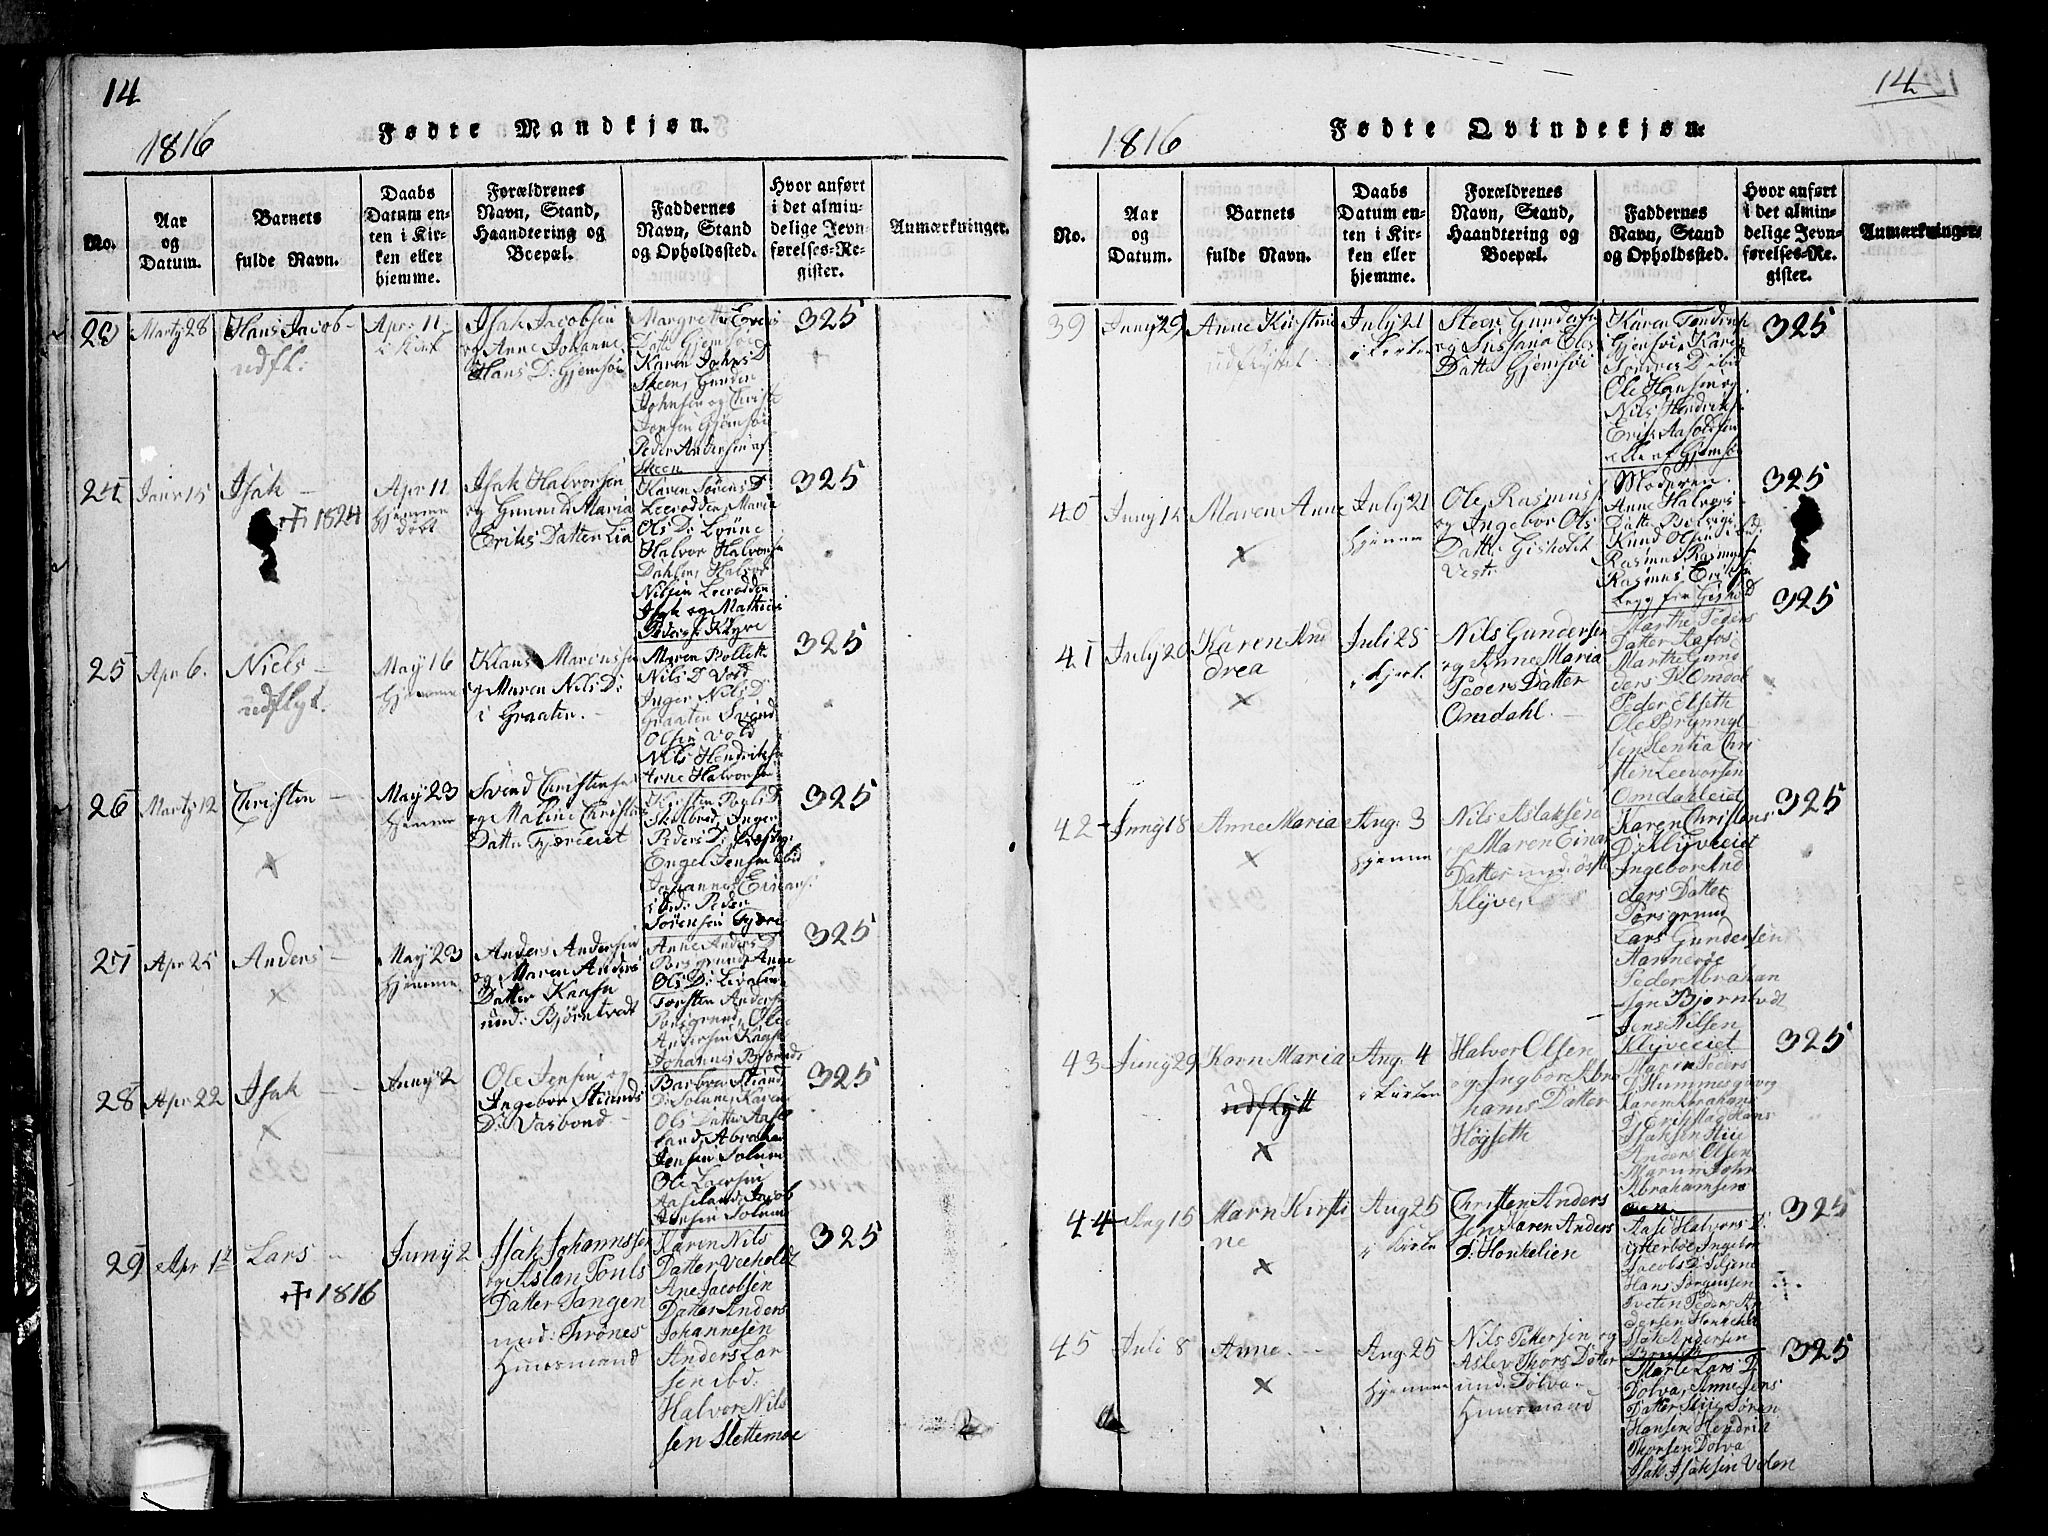 14
1816
Fødte Mandkjøn.
No.
Aar
og
Datum.
Barnets
fulde Navn.
Daabs
Datum en-
ten i Kir-
ken eller
hjemme.
Forældrenes
Navn, Stand,
Haandtering og
Boepæl.
Faddernes
Navn, Stand
og Opholdssted.
Hvor anført
i det almin-
delige Jevn-
førelses-Re-
gister.
Anmærkninger.
23
Marty 28
Hans Jacob -
udfl.
Apr: 11
i Kirk
Isak Jacobsen
og Anne Johanne
Hans D: Gjemsøe
Margrethe
Gjemsøe
Karen Johns D
Skeen, Gunder
Johnsen og Christe
Jonsen Gjemsøe
Peder Andersen af
Skeen
325
24
Janr 15
Isak -
1824
Apr 11
hjemme
døbt
Isak Halvorsen
og Gunild Maria
Eriks Datter Lia
Karen Sørens D:
Leerodden, Maria
Ols D: Lyøne
Halvor Halvorsen
Dahlen, Halvor
Nilsen Leerodden
Isak og Mathies
Peders: Klyve
325
25
Apr 6.
Niels -
udflyt.
May 16
hjemme
Klaus Marenssen
og Maren Nils D:
i Graaten. -
Maren Rollef
Nils D Vold
Inger Nils D:
Graaten Svend
Olsen Vold
Nils Hendriksen
Arne Halvorsen
325
26
Marty 12
Christen -
x
May 23
hjemme
Svend Christensen
og Maline Christens
Datter Fjæreeiet
Kirsten Povls D:
Skilbred, Inger
Peders D:
Engel Jensen ibid
Johannes Einars:
ibid: Peder
Sørensen Fjære
325
27
Apr 25
Anders -
x
May 23
hjemme
Anders Andersen
og Maren Anders
Datter Kaasen
und: Bjørntvedt
Anne Anders D
Porsgrund, Anne
Ols D:
Torsten Anders
Porsgrund, Ole
Andersen Knar
Johannes Bjørntv
325
28
Apr 22
Isak -
x
Juny 2
Ole Jensen og
Ingebor Stians
D: Vasbond -
Barbra Stians
D: Solum, Karen
Ols Datter Aase
land, Abraham
Jensen Solum
Ole Larsen
Aaseland, Jacob
Jensen Solum
325
29
Apr 1st
Lars -
1816
Juny 2
Isak Johannssen
og Aslau Pouls
Datter Tangen
und: Frønes
Huusmand
Karen Nils
Datter Veeholdt
Ane Jacobsen
Datter Anders
Johannesen
Anders Lar
sen ibd:
Halvor Nils
sen Slettemoe
325
14
1816
Fødte Qvindekjøn.
No.
Aar
og
Datum.
Barnets
fulde Navn.
Daabs
Datum en-
ten i Kir-
ken eller
hjemme.
Forældrenes
Navn, Stand,
Haandtering og
Boepæl.
Faddernes
Navn, Stand
og Opholdssted.
Hvor anført
i det almin-
delige Jevn-
førelses-Re-
gister.
Anmærkninger.
39
Juny 29
Anne Kirstine
udflyttet
July 21
i Kirken
Steen Gundersen
og Susana Els
Datter Gjemsøe
Karen
Gjemsøe, Karen
D ibid
Ole Hansen og
Nils Hendriks:
Erik Aasoldsen
alle af Gjemsøe
325
40
Juny 14
Maren Anne
x
July 21
hjemme
Ole Rasmus:
og Ingebor Ols
Datter Gisholt
Vestr
Moderen.
Anne Halvors
Datter
Knud Olsen
Rasmus Rasmuss
Rasmus Eriks
325
41
July 20
Karen And
drea
x
Juli 28
i Kjerk.
Nils Gundersen
og Anne Maria
Peders Datter
Omdahl. -
Marthe Peders
Datter Aafos
Marthe Gund
ders D: Omdal
Peder Elseth
Ole Brynnyl
sen Hentia Chri
sten Leevorsen
Omdahleiet
325
42
Juny 18
Anne Maria
x
Aug. 3
hjemme
Nils Aslaksen
og Maren Einar
Datter und: Østr
Klyve,
Karen Christens
D: Klyveeiet
Ingebor And
ders Datter
Porsgrund
Lars Gundersen
Hannerøe
Peder Abraham
sen Bjørntvdt
Jens Nilsen
Klyveeiet
325
43
Juny 29
Karn Maria
udflytt
x
Aug. 4
i Kirken
Halvor Olsen
og Ingbor Abra
hams Datter
Høgseth
Maren Peders
D Hummesgrovg
Karen Abraham
D, Erik Mad Hans
Isaksen Stie
Anders Olsen
Marum John
Abrahamsen
325
44
Aug 15
Marn Kirsti
ne
x
Aug 25
i Kirken
Christen Anders
sen Karen Anders
D: Honkelien
Aase Halvors D:
ytterbøe Ingebor
Jacobs D: Siljene
Hans Jørgensen
Tveten Peder An
dersen Honkelie
Isak Andersen
325
45
Juli 8
Anne -
x
Aug 25
hjemme
Nils Pettersen og
Aslev Thors Datter
und: Tolva -
Huusmand
Marte Lars D
Dolva, Anne Jens
Datter Stie Søren
Hansen, Hendrik
Thorsen Dolva
Isak Isaksen Velen
325